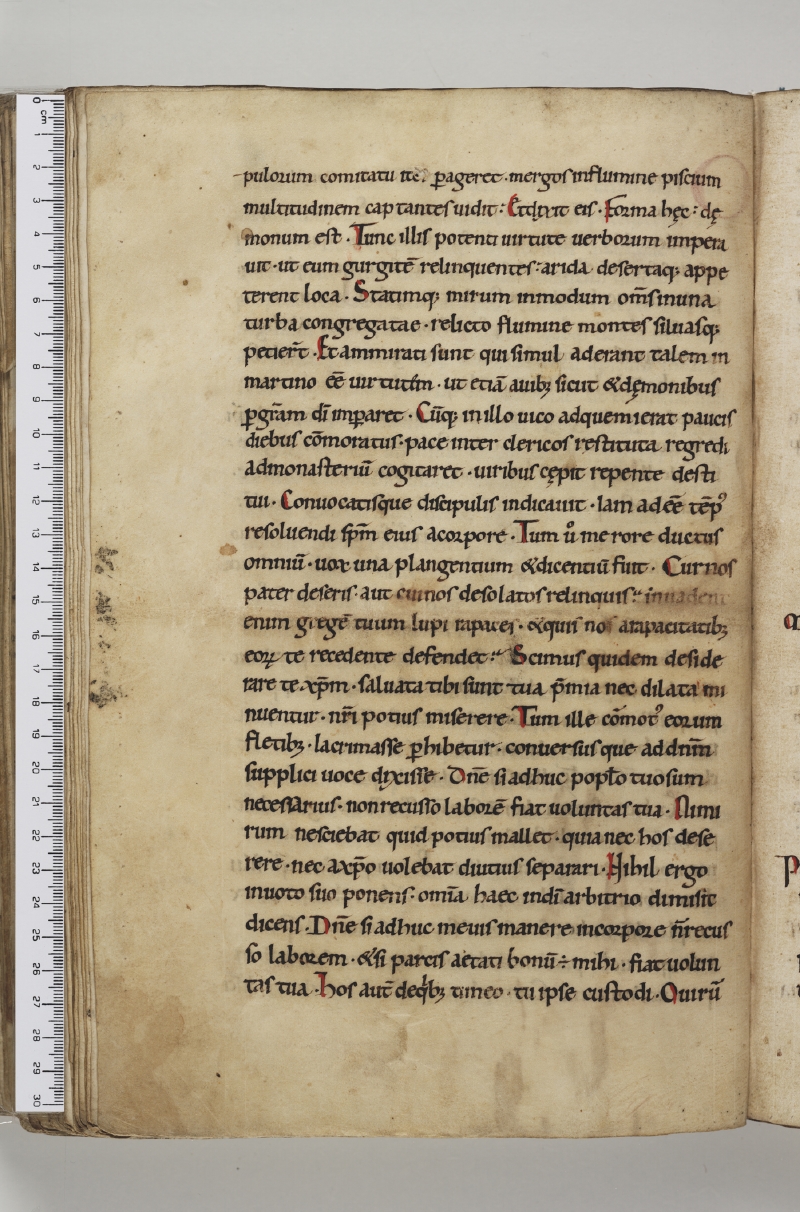 pulorum comitatu it&. ꝑager&. mergos influmine piscium
multitudinem captantes uidit: Etdixit eis. Forma hęc: dę
monum est. Tunc illis potenti uirtute uerborum impera
uit. ut eum gurgitē relinquentes: arida desertaq; appe
terent loca. Statimq; mirum inmodum om̄s inuna
turba congregatae. relicto flumine montes siluasq;
petier̄t. Et ammirati sunt qui simul aderant talem in
martino eē̄ uirtutēm. ut etiā auib; sicut &dęmonibus
ꝑ gr̄am dī imꝑaret. Cūq; in illo uico adquem ierat paucis
diebus cōmoratus. pace inter clericos restituta regredi
admonasteriū cogitaret. uiribus cępit repente desti
tui. Conuocatisque discipulis indicauit. Iam adeē̄ tēp᾿
resoluendi sp̄m eius acorpore. Tum ů merore ductus
omniū. uox una plangentium &dicentiū fuit. Cur nos
pater deseris. aut cui nos desolatos relinquis: inuadent
enim gregē tuum lupi rapaces. &quis nos arapacitatib;
eoꝝ te recedente defendet: Scimus quidem deside
rare te xp̄m. saluata tibi sunt tua p̄mia nec dilata mi
nuentur. nr̄i potius miserere. Tum ille cōmot᾿ eorum
fletib;. lacrimasse ꝑhibetur. conuersusque ad dn̄m
supplici uoce dixisse. Dn̄e si adhuc popl̄o tuo sum
necessarius. non recusso laborē fiat uoluntas tua. Nimi
rum nesciebat quid potius mallet. quia nec hos dese
rere. nec axp̄o uolebat diutius separari. Nihil ergo
inuoto suo ponens. omīa haec indī arbitrio dimisit
dicens. Dn̄e si adhuc me uis manere incorpore n̄ recus
so laborem. &si parcis aetati bonū ÷ mihi. fiat uolun
tas tua. Hos aut̄ deq̇b; timeo. tu ipse custodi. O uirū